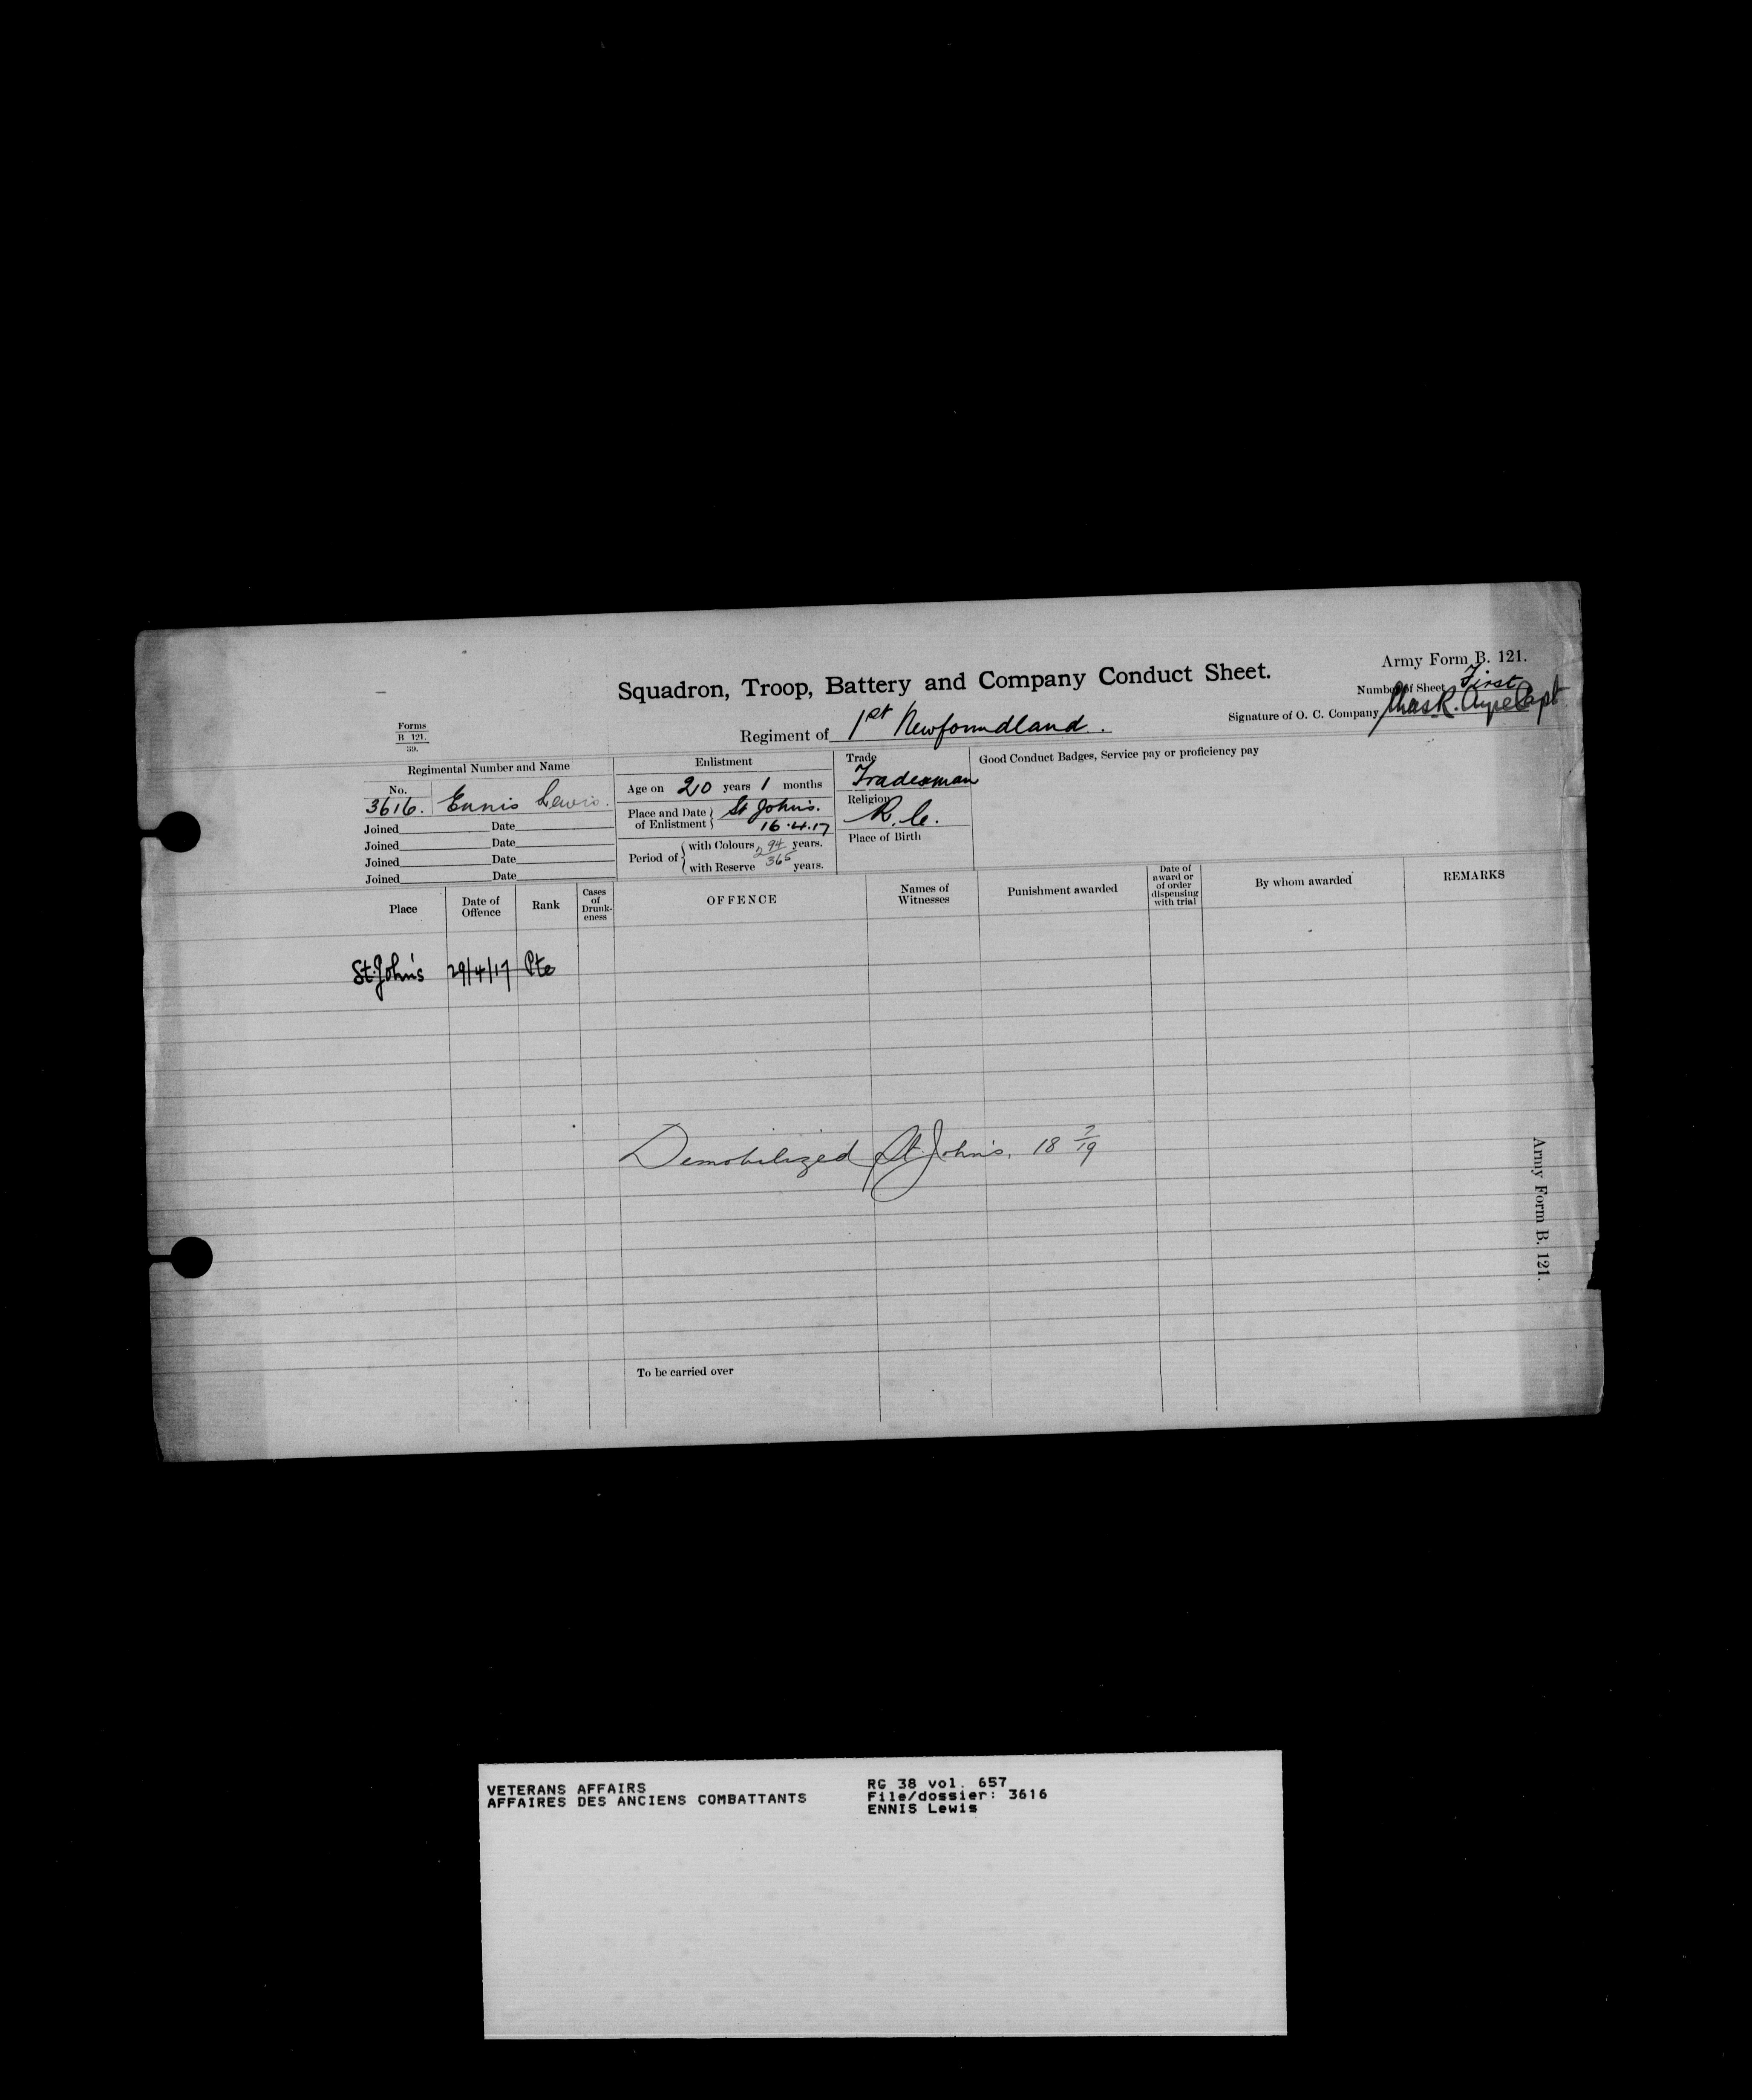 Army Form B. 121.
Squadron, Troop, Battery and Company Conduct Sheet.
Number of Sheet First
Signature of O. C. Company Chas R. Ayre Capt
Forms
B 121.
39.
Regiment of 1st Newfoundland.
Regimental Number and Name
No.
3616. Ennis Lewis.
Joined Date
Joined Date
Joined Date
Joined Date
Enlistment
Age on 20 years 1 months
Place and Date of Enlistment St John's.
16.4.17
Period of with Colours 2 94 years.
with Reserve 365 years.
Trade
Tradesman
Religion
R. C.
Place of Birth
Good Conduct Badges, Service pay or proficiency pay
Place
Date of Offence
Rank
Cases of Drunk-eness
OFFENCE
Names of Witnesses
Punishment awarded
Date of award or of order dispensing with trial
By whom awarded
REMARKS
St. John's 29/4/17 Pte
Demobilized St. John's. 18 7/19
To be carried over
Army Form B. 121.
VETERANS AFFAIRS
AFFAIRES DES ANCIENS COMBATTANTS
RG 38 vol. 657
File/dossier: 3616
ENNIS Lewis